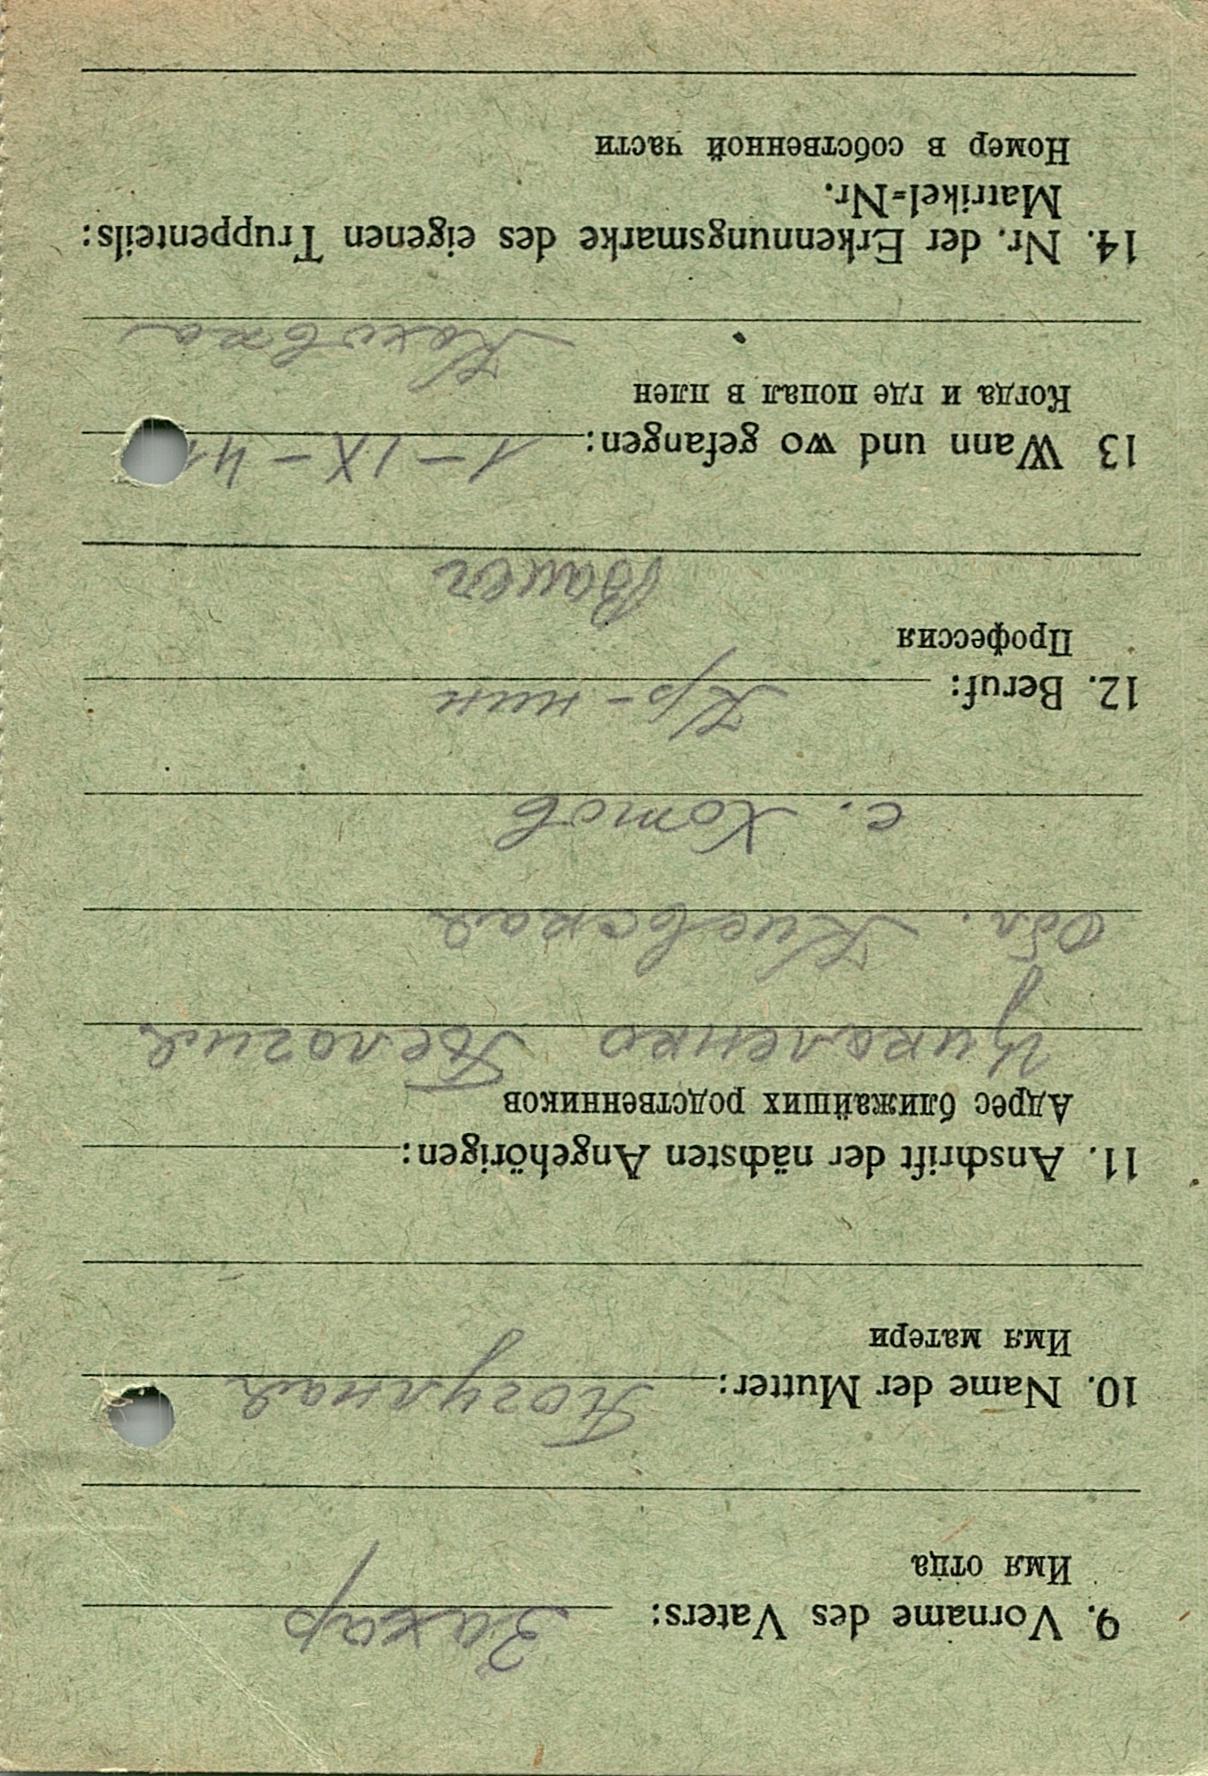 9. Vorname des Vaters: Захар
Имя отца
10. Name der Mutter:
Имя матери
11. Anschrift der nächsten Angehörigen:
Адрес ближайших родственников
Цикаленко Пелогия
Обл. Киевская
с. Хотов
12. Beruf: Кр-нин
Профессия
Bauer
13 Wann und wo gefangen: 1-IX-41
Когда и где попал в плен
Каховка
14. Nr. der Erkennungsmarke des eigenen Truppenteils:
Matrikel=Nr.
Номер в собственной части